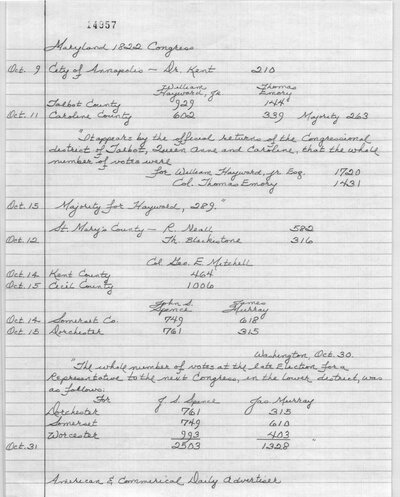 14957
Maryland 1822 Congress
Oct. 9 City of Annapolis - Dr. Kent 210
William Hayward, Jr. Thomas Emory
Talbot County 929 144
Oct. 11 Caroline County 602 339 Majority 263
"It appears by the official returns of the Congressional
district of Talbot, Queen Anne and Caroline, that the whole
number of votes were
for William Hayward, jr. Esq. 1720
Col. Thomas Emory 1431
Oct. 15 Majority for Hayward, 289."
St. Mary's County - R. Neall 582
Oct. 12 Th. Blackistone 316
Col. Geo. E. Mitchell
Oct. 14 Kent County 464
Oct. 15 Cecil County 1006
John S. Spence James Murray
Oct. 14 Somerset Co. 749 618
Oct. 15 Dorchester 761 315
Washington, Oct. 30.
"The whole number of votes at the late Election for a
Representative to the next Congress, in the lower district, was
as follows:
For J. S. Spence Jas. Murray
Dorchester 761 315
Somerset 749 610
Worcester 993 403
Oct. 31 2503 1328 "
American & Commerical Daily Advertiser